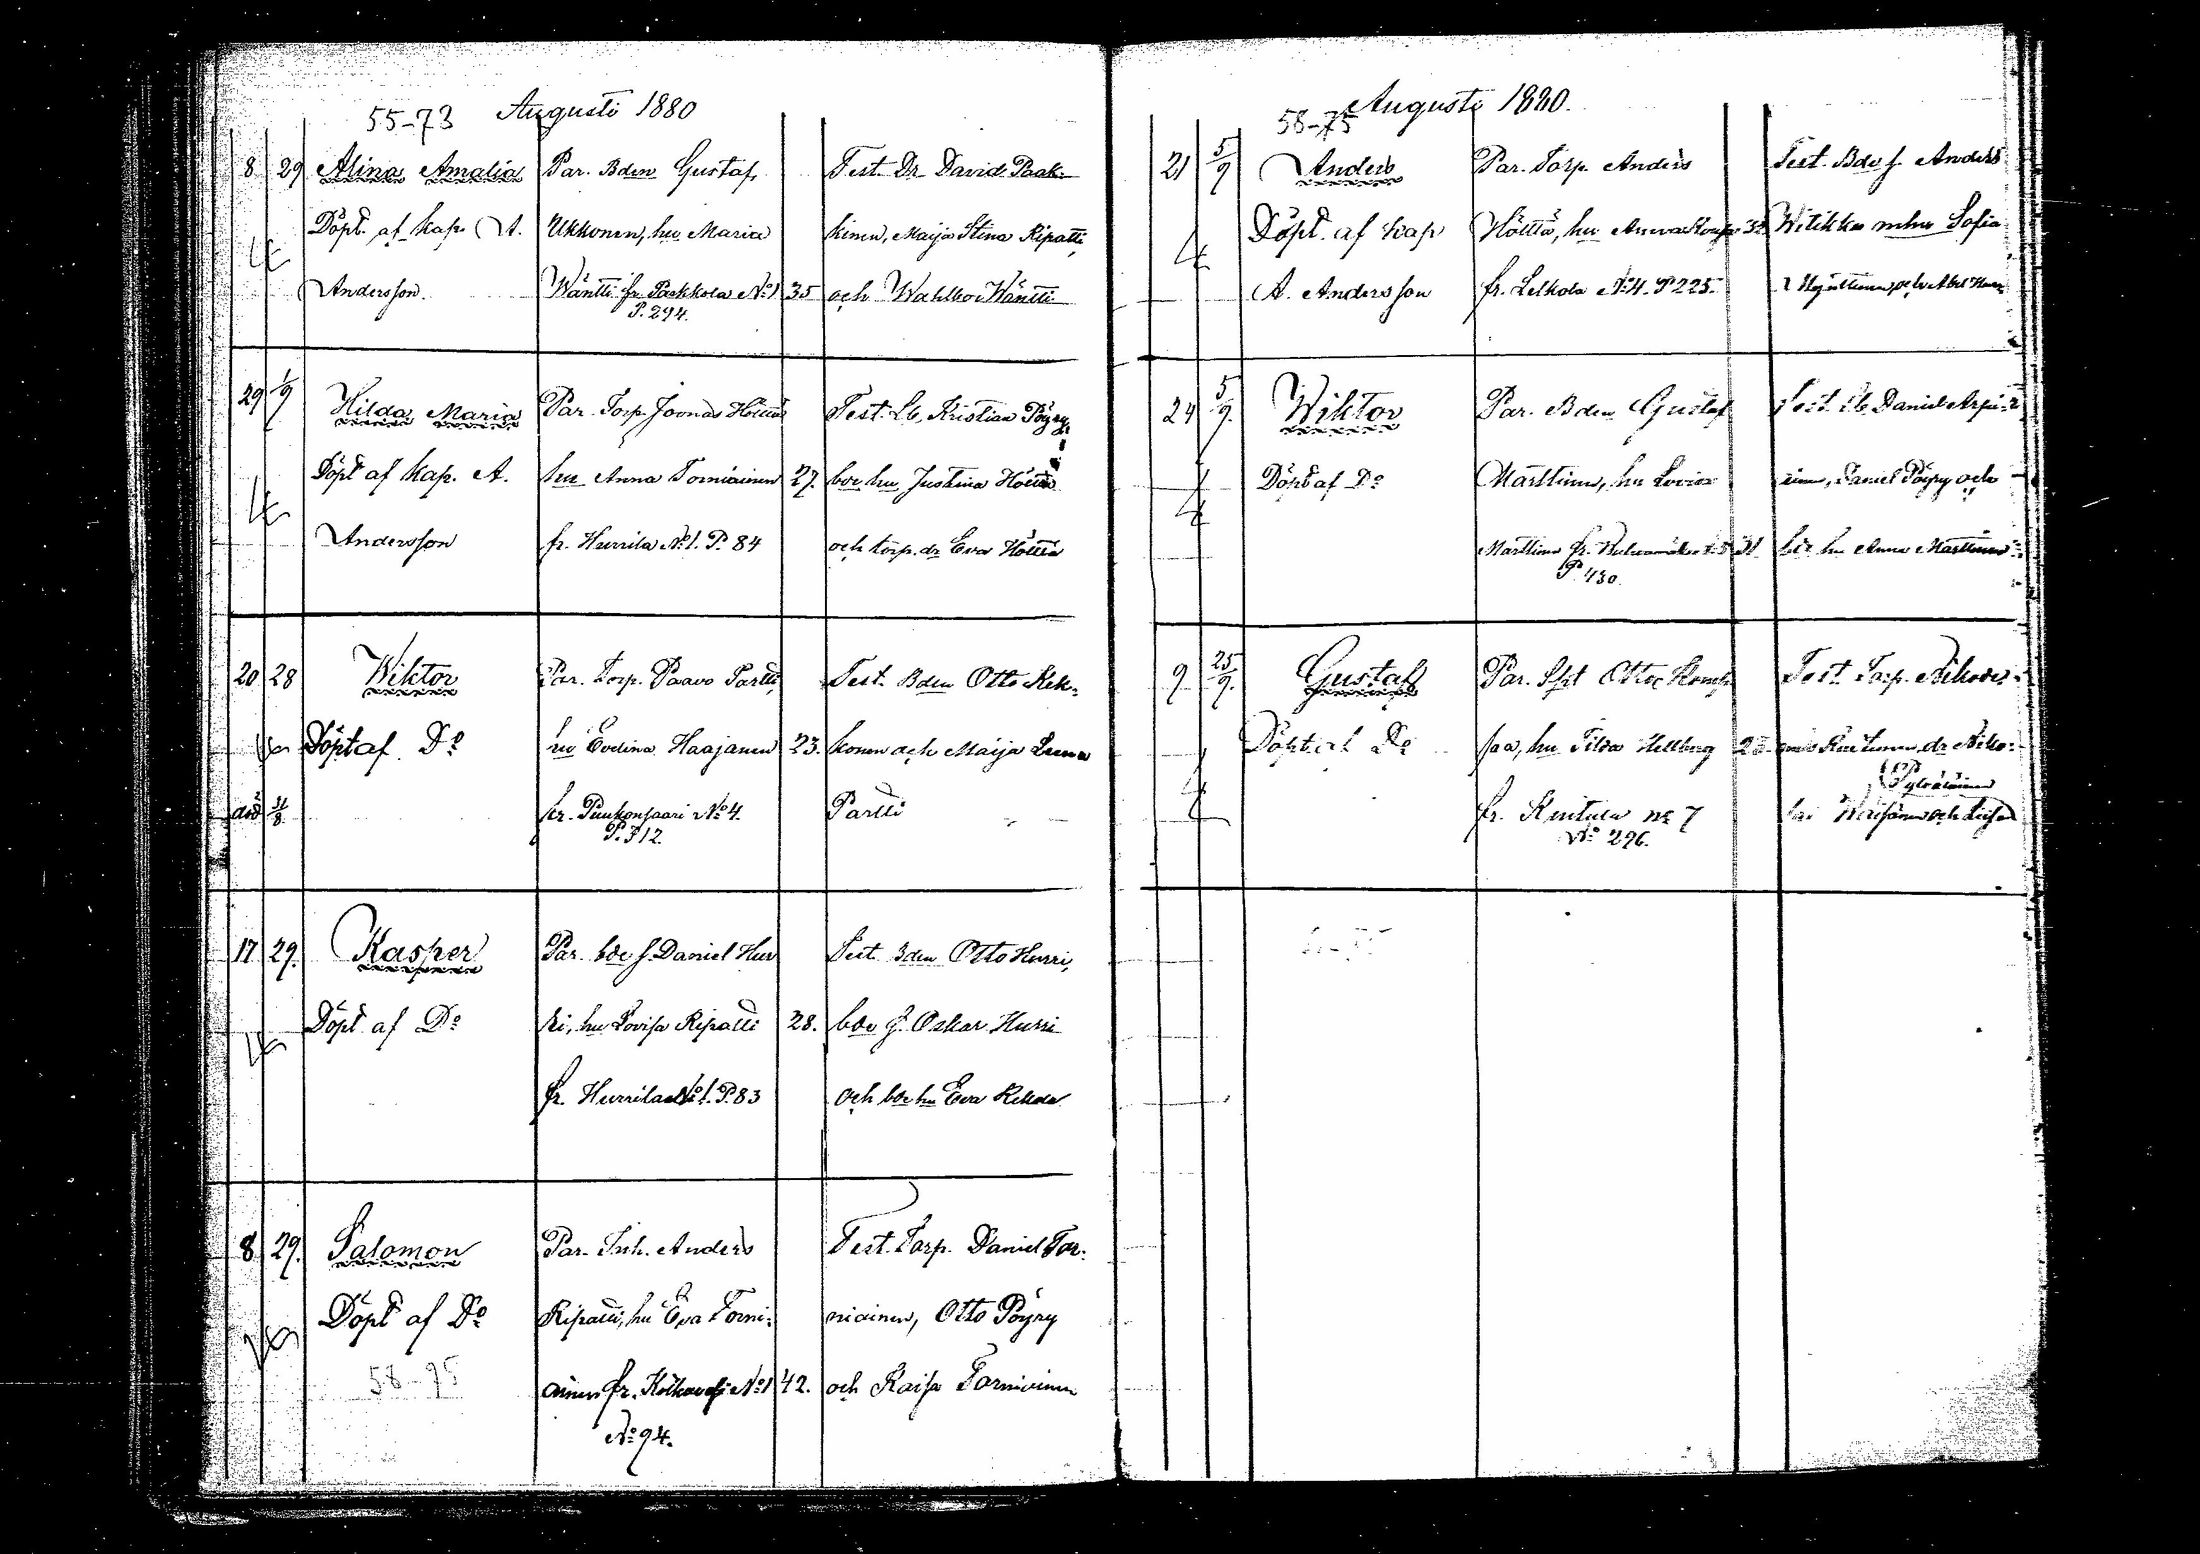 55-73 Augusti 1880
8 29 Alina Amalia Par. Bden Gustaf Test. Dr David Paak-
Döpt af Kap A. Ukkonen, hu Maria kinen, Maija Stina Ripatti,
Andersson. Wäntti fr. Paakkola No 1 35 och Wahlbor Wäntti
P. 294.
29 1/9 Hilda Maria Par. Torp. Joonas Hölttä Test. Lb. Kristian Pöyry,
Döpt af Kap. A. hu Anna Torniainen 27. bde hu Justina Höltta
Andersson fr. Hurrila No 1. P. 84 och torp. dr Eva Höltta
20 28 Wiktor Par. Torp. Paavo Partti, Test. Bden Otto Kek-
Döpt af Do hu Evelina Haajanen 23. konen och Maija Leena
död 31/8 fr. Puukonsaari No 4. Partti
P. 312.
17 29. Kasper Par. bde s. Daniel Hur Test. Bden Otto Hurri,
Döpt af Do ri, hu Lovisa Ripatti 28. bde s. Oskar Hurri
fr. Hurrila No 1. P. 83 och bde hu Eva
8 29. Salomon Par. Inh. Anders Test. Torp. Daniel Tor-
Döpt af Do Ripatti, hu Eva Torni- niainen, Otto Pöyry
58-75 ainen fr. No 1 42. och Kaisa Torniainen
No 94.
58-75 Augusti 1880.
21 5/9 Anders Par. Torp. Anders Test. Bde s. Anders
Döpt. af Kap Höltta, hu Anna Witikka mhu Sofia
A. Andersson fr. Lelkola No 4. P 225. och Abel
24 5/9. Wiktor Par. Bden Gustaf Test. Lb Daniel
Döpt af Do Marttinen, hu Lovisa Daniel Pöyry och
Marttinen fr. bde hu Anna Marttinen
P. 430.
9 25/9. Gustaf Par. Otto Test. Torp.
Döpt af Do hu Tilda Hellberg dr
Pylväläinen
fr. Rintula no 7 och
No 296.